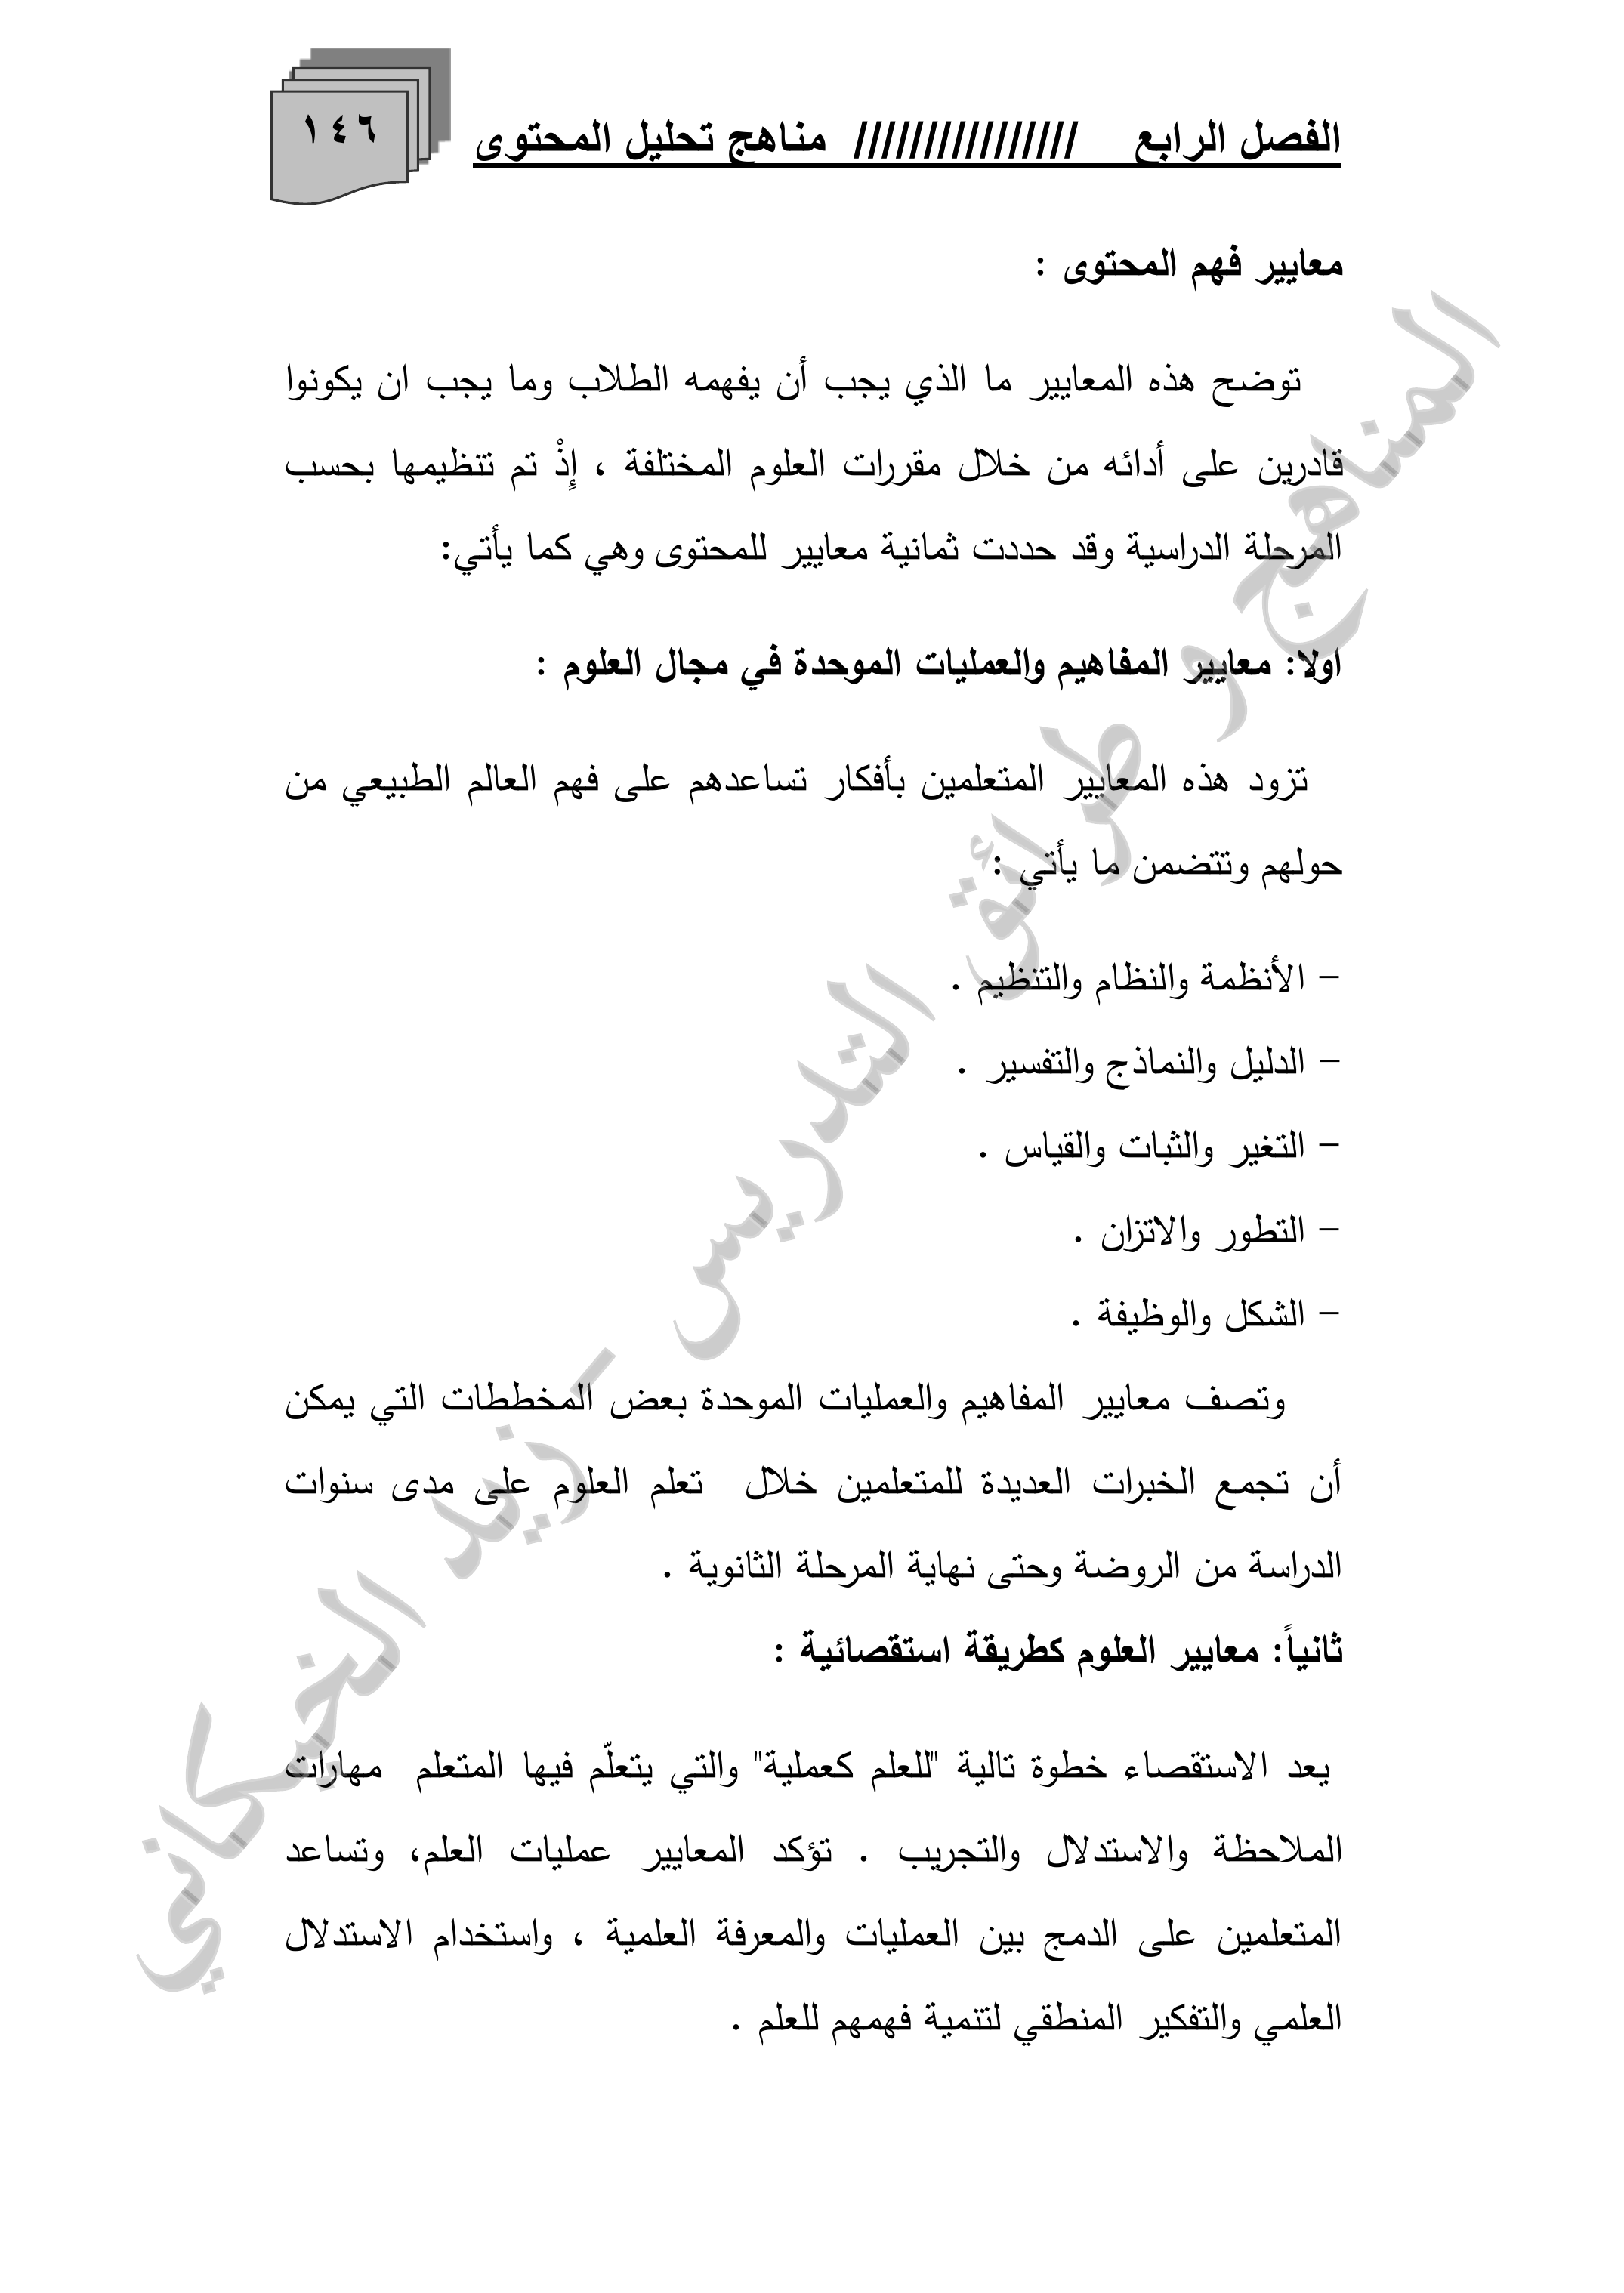 الفصل الرابع //////////////// مناهج تحليل المحتوى
١٤٦
معايير فهم المحتوى :
توضح هذه المعايير ما الذي يجب أن يفهمه الطلاب وما يجب ان يكونوا
قادرين على أدائه من خلال مقررات العلوم المختلفة ، إِذْ تم تنظيمها بحسب
المرحلة الدراسية وقد حددت ثمانية معايير للمحتوى وهي كما يأتي:
اولا: معايير المفاهيم والعمليات الموحدة في مجال العلوم :
تزود هذه المعايير المتعلمين بأفكار تساعدهم على فهم العالم الطبيعي من
حولهم وتتضمن ما يأتي :
- الأنظمة والنظام والتنظيم .
- الدليل والنماذج والتفسير .
- التغير والثبات والقياس .
- التطور والاتزان .
- الشكل والوظيفة .
وتصف معايير المفاهيم والعمليات الموحدة بعض المخططات التي يمكن
أن تجمع الخبرات العديدة للمتعلمين خلال تعلم العلوم على مدى سنوات
الدراسة من الروضة وحتى نهاية المرحلة الثانوية .
ثانياً: معايير العلوم كطريقة استقصائية :
يعد الاستقصاء خطوة تالية "للعلم كعملية" والتي يتعلّم فيها المتعلم مهارات
الملاحظة والاستدلال والتجريب . تؤكد المعايير عمليات العلم، وتساعد
المتعلمين على الدمج بين العمليات والمعرفة العلمية ، واستخدام الاستدلال
العلمي والتفكير المنطقي لتنمية فهمهم للعلم .
المناهج و طرائق التدريس - زيد الخيكاني